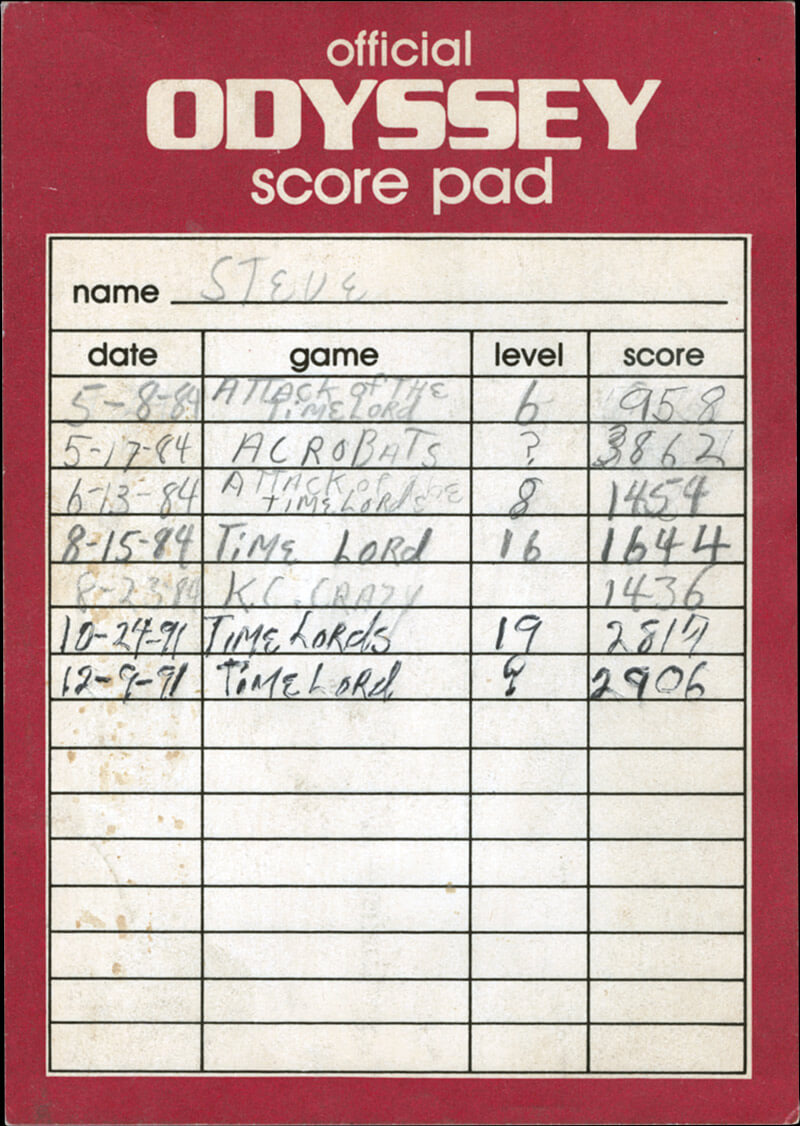 official
ODYSSEY
score pad
name STEVE
date game level score
5-8-84 ATTACK of THE TIMELORD 6 958
5-17-84 ACROBATS ? 3862
6-13-84 ATTACK of the TIMELORDS 8 1454
8-15-84 TIME LORD 16 1644
8-23-84 K.C. CRAZY 1436
10-24-91 TIME LORDS 19 2817
12-9-91 TIME LORD ? 2906